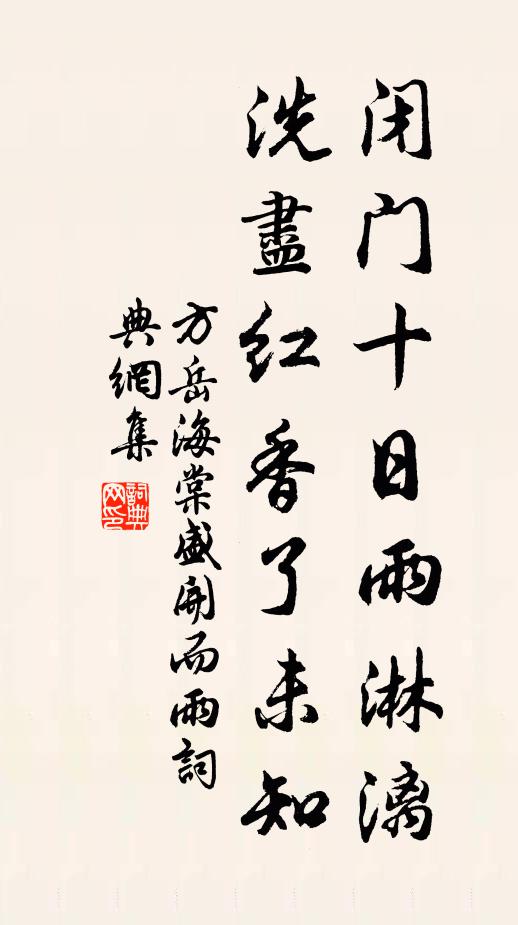 闭门十日雨淋漓
洗盡红香了未知
方岳海棠盛開而雨詞
典網集
詞典网印